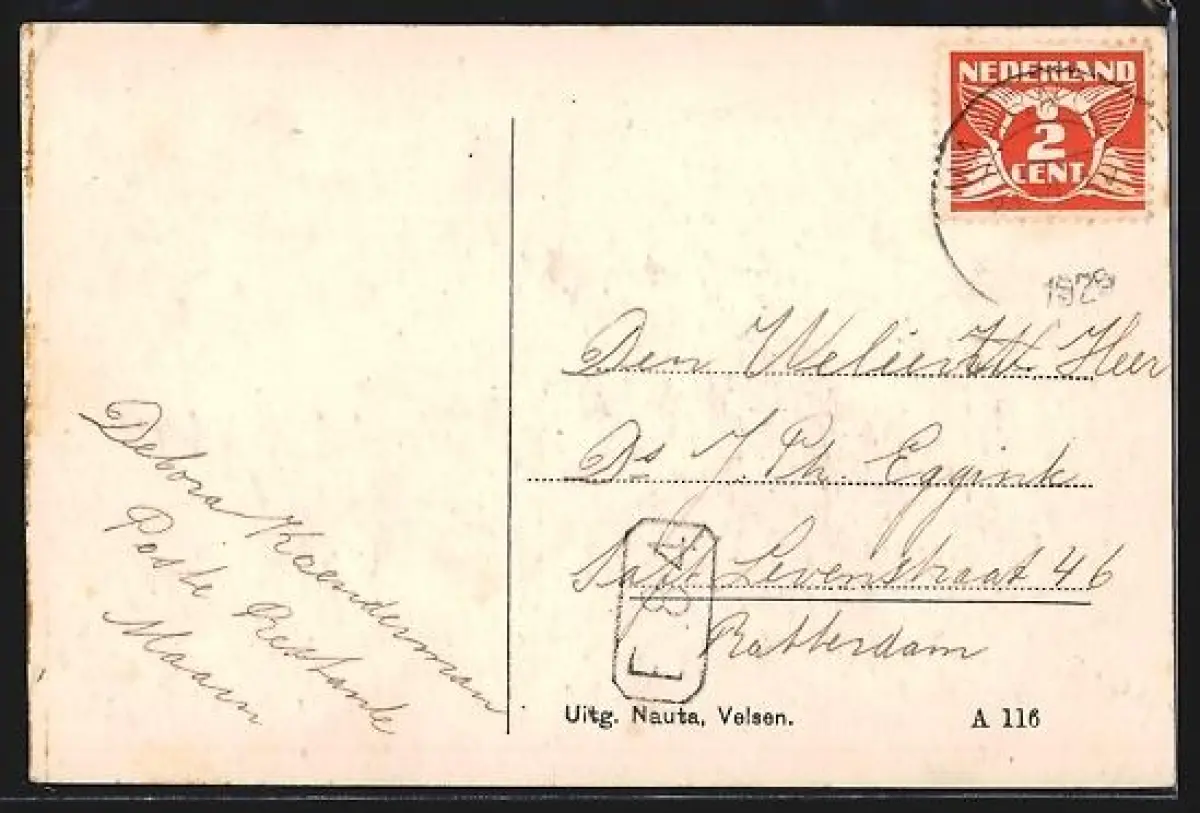 NEDERLAND
2
CENT
1928
Den Heer
Ds J. Ph. Eggink
Levenstraat 46
Rotterdam
Debora Koenderman
Poste Restante
Maarn
Uitg. Nauta, Velsen.
A 116